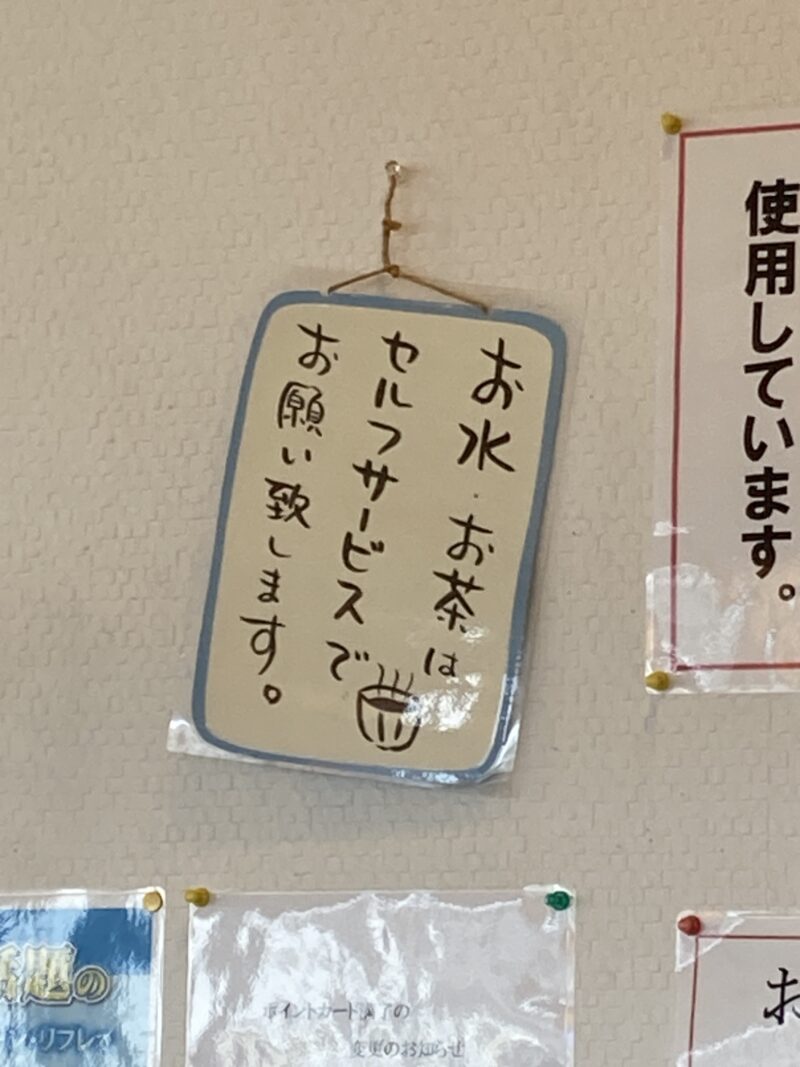 お水・お茶は
セルフサービスで
お願い致します。
使用しています。
題の
リフレ
ポイントカード満了の
変更のお知らせ
お